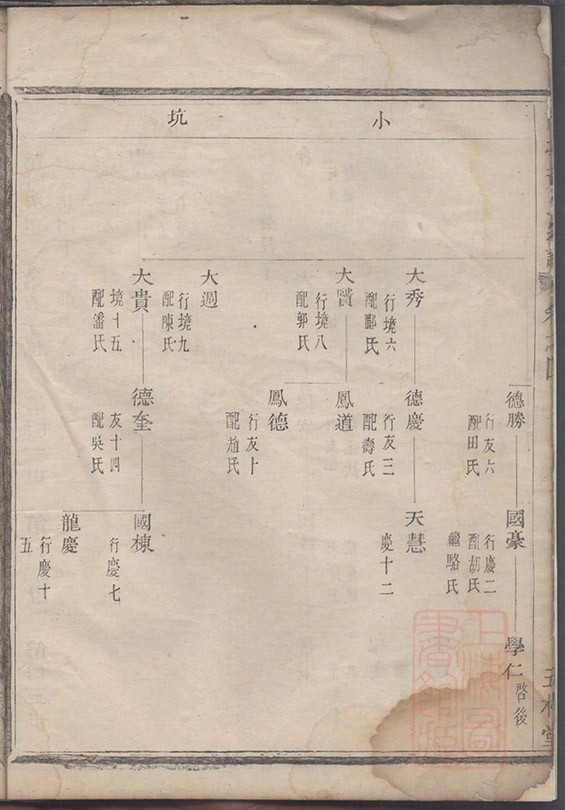 小坑
德勝
行友六
配田氏
國豪
行慶二
配胡氏
繼駱氏
學仁
啓後
大秀
行境六
配鄒氏
德慶
行友三
配壽氏
天慧
慶十二
大賢
行境八
配郭氏
鳳道
鳳德
行友十
配趙氏
大週
行境九
配陳氏
大貴
境十五
配潘氏
德奎
友十四
配吳氏
國棟
行慶七
龍慶
行慶十
五
上海圖
書館藏